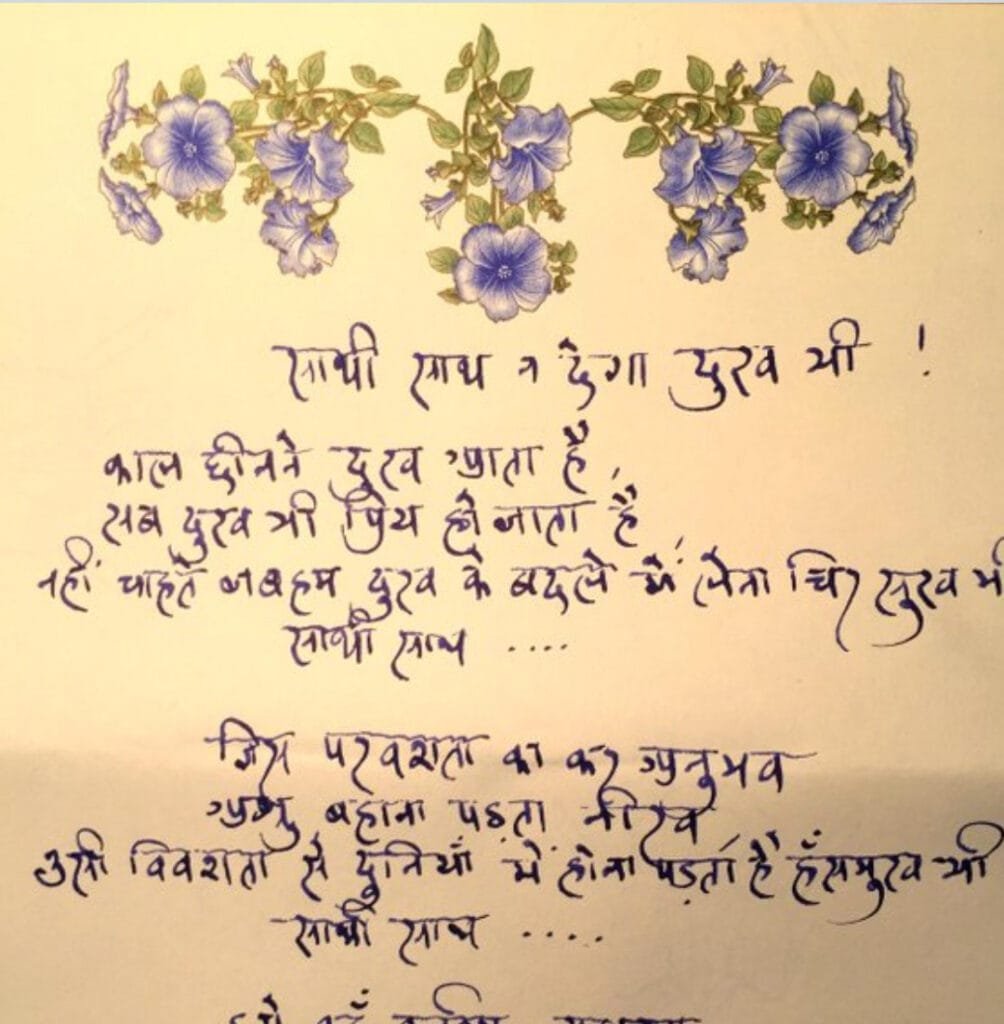 साथी साथ न देगा दुख भी !
काल छीनने दुख आता है,
जब दुख भी प्रिय हो जाता है
नहीं चाहते जब हम दुख के बदले में लेना चिर सुख भी
साथी साथ ....
जिस परवशता का कर अनुभव
अश्रु बहाना पडता नीरव
उसी विवशता से दुनियाँ में होना पड़ता है हँसमुख भी
साथी साथ .....